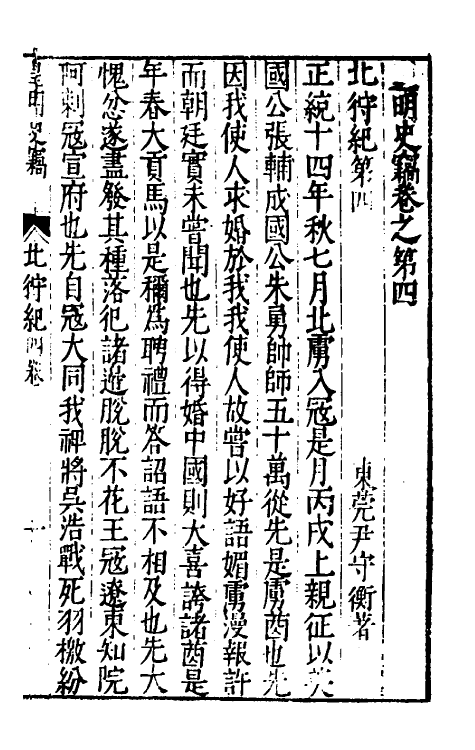 明史竊卷之第四
北狩紀第四
東莞尹守衡著
正統十四年秋七月北虜入冦是月丙戌上親征以英
國公張輔成國公朱勇帥師五十萬從先是虜酋也先
因我使人求婚於我我使人故嘗以好語媚虜漫報許
而朝廷實未嘗聞也先以得婚中國則大喜誇諸酋是
年春大貢馬以是稱爲聘禮而答詔語不相及也先大
愧忿遂盡發其種落犯諸邊脫脫不花王冦遼東知院
阿剌冦宣府也先自冦大同我裨將吳浩戰死羽檄紛
皇明史竊
北狩紀四卷
一